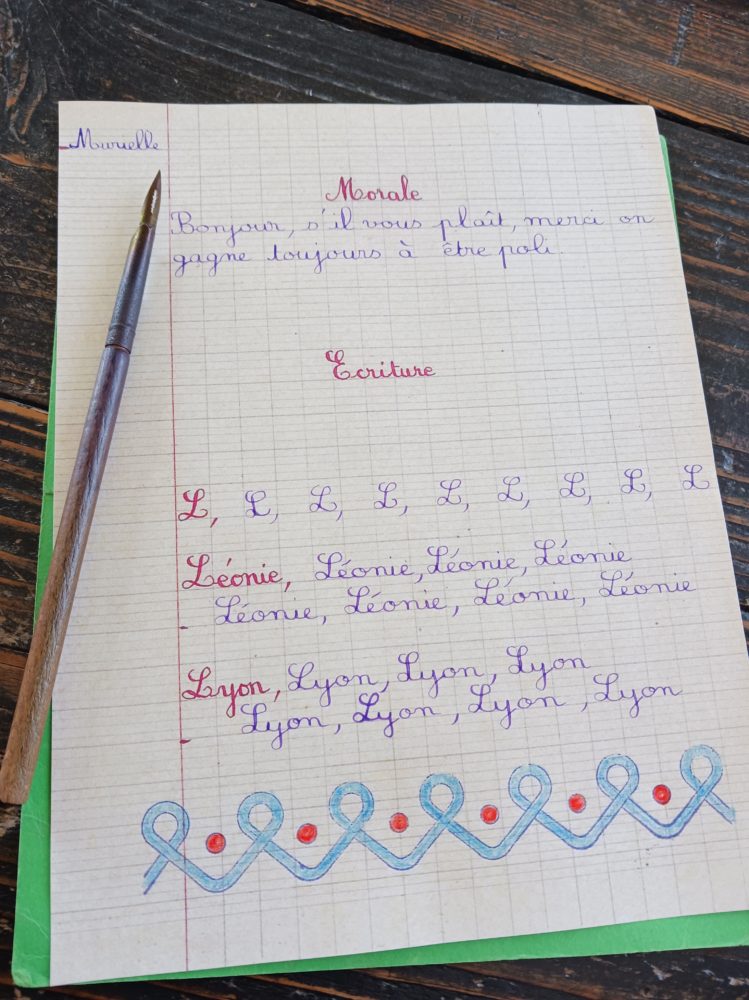 Murielle
Morale
Bonjour, s'il vous plaît, merci on
gagne toujours à être poli.
Ecriture
L, L, L, L, L, L, L, L, L
Léonie, Léonie, Léonie, Léonie
- Léonie, Léonie, Léonie, Léonie
Lyon, Lyon, Lyon, Lyon
- Lyon, Lyon, Lyon, Lyon